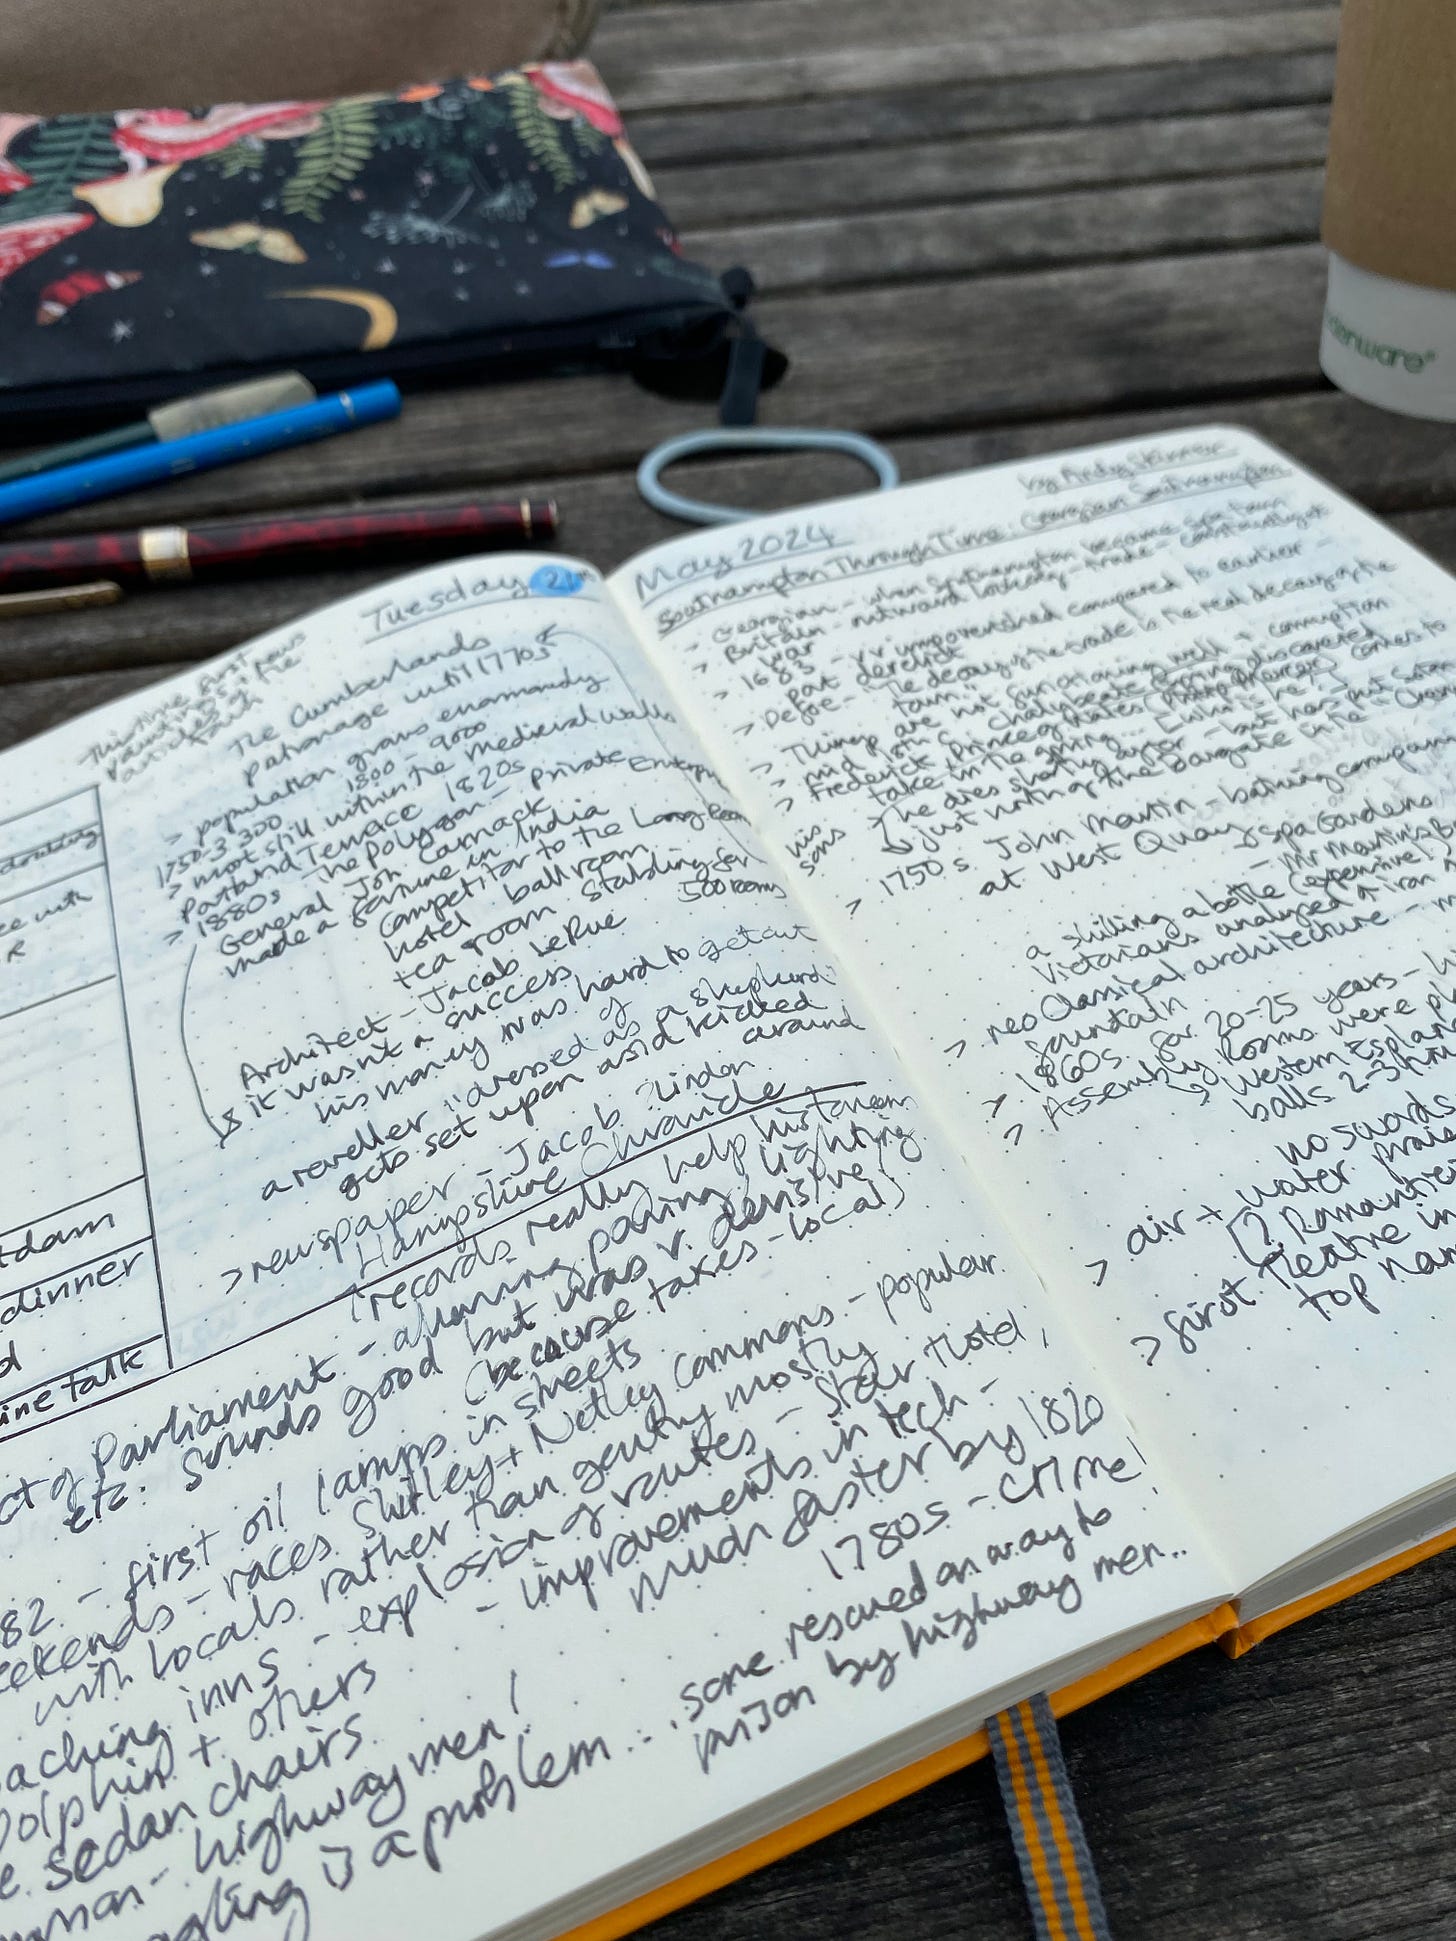 Tuesday 21
This time first
The Cumberlands
patronage until 1770s
> population grows enormously
1750 - 3,300 1800 - 9000
> most still within the medieval walls
Portland Terrace 1820s
> 1880s The Polygon - private
General Joh Carnack
made a fortune in India
Competitor to the Long
hotel ballroom
tea room stabling for
500
Architect - Jacob LeRue
it wasn't a success
his money was hard to get out
of
a reveller "dressed as a shepherd"
gets set upon and kicked
around
> newspaper - Jacob Lindon
Hampshire Chronicle
↑ records really help historians
ct of Parliament - alluming paving / lighting
etc. Sounds good but was v. devisive
(because taxes - local)
82 - first oil lamps in streets
eekends - races Shirley + Netley Commons - popular
with locals rather than gentry mostly
oaching inns - explosion of routes - Star Hotel,
Dolphin + others - improvements in tech -
much faster by 1820
e. sedan chairs
- highway men! 1780s - crime!
ggling is a problem... some rescued on way to
prison by highway men..
tdam
dinner
d
ine talk
ee with
R
May 2024
by Andy Skinner
Southampton Through Time: Georgian Southampton
> Georgian - when Southampton became spa town
> Britain - outward looking - trade - constantly at
war
> 1683 - v.v impoverished compared to earlier -
part derelict
> Defoe - "the decay of the trade is the real decay of the
town"
> Things are not functioning well + corruption
> mid 18th C chalybeate spring discovered
> Frederick Prince of Wales comes to
take in the spring... [who is he?]
↳ he dies shortly after - but has put Sotan
his sons
↳ just north of the Bargate in the
> 1750s John Martin - bathing company
at West Quay > Spa Gardens
- Mr Martin's
a shilling a bottle (expensive)
Victorians analysed + iron
> neo Classical architecture -
fountain
> 1860s for 20-25 years -
> Assembly Rooms were
↳ Western Esplan
balls 2-3
no swords
> air + water
[? Romantic
> first Theatre in
top
enware®